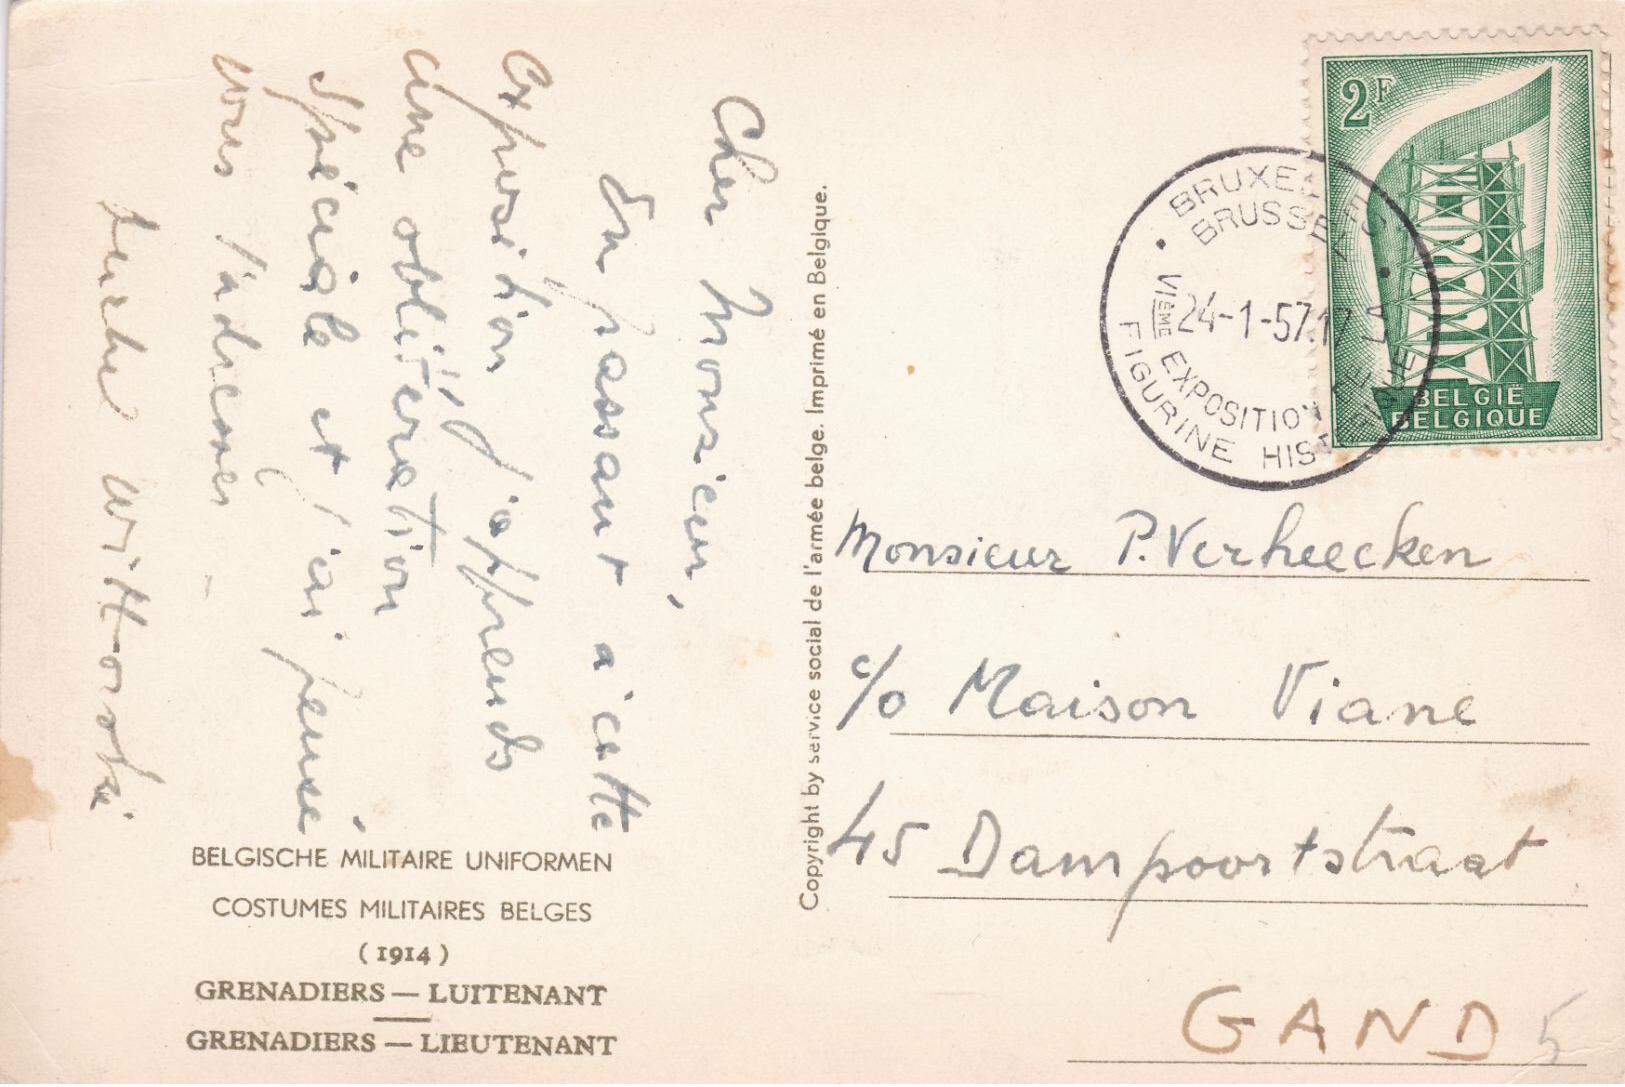 Cher Monsieur,
En passant à cette
exposition j'apprends
une oblitération
spéciale et j'ai pensé
vous l'adresser -
Wittorski
BELGISCHE MILITAIRE UNIFORMEN
COSTUMES MILITAIRES BELGES
(1914)
GRENADIERS — LUITENANT
GRENADIERS — LIEUTENANT
Copyright by service social de l'armée belge. Imprimé en Belgique.
2F
BELGIË
BELGIQUE
BRUXELLES
BRUSSEL
24-1-57.17
VIÈME EXPOSITION DE LA
FIGURINE HISTORIQUE
Monsieur P. Verheecken
c/o Maison Viane
45 Dampoortstraat
GAND 5